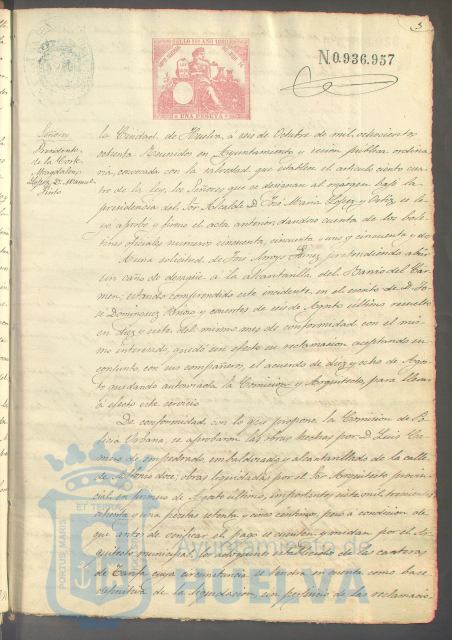 5
SELLO 11º AÑO 1880
UNA PESETA
N0.936.957
Señores
Presidente
de la Corte
Magdalena
López D. Manuel
Pinto
la Ciudad de Huelva, á seis de Octubre de mil ochocientos
ochenta Reunidos en Ayuntamiento y sesion publica ordina-
ria, convocada con la
tro de la ley, los Señores que se designan al margen bajo la
presidencia del Sor Alcalde D. José Maria Lopez y Ortiz, se le-
yo, aprobó y firmó el acta anterior, dandose cuenta de los bole-
tines oficiales numeros cincuenta, cincuenta y uno y cincuenta y dos
A una solicitud de José Arroyo pretendiendo abrir
un caño de desagüe a la alcantarilla del Barrio del Car-
men; estando comprendido este incidente en el escrito de D. Jo-
sé Dominguez y de seis de Agosto ultimo resuelto
en diez y siete del mismo mes de conformidad con el mis-
mo interesado, quedó sin efecto su reclamacion aceptando en
conjunto con sus compañeros, el acuerdo de diez y ocho de Agos-
to quedando autorizada la Comision y Arquitecto, para llevar
á efecto este servicio
De conformidad con lo que propone la Comision de Po-
licia Urbana, se aprobaron las obras hechas por D. Luis
de empedrado, embaldosado y alcantarillado de la calle
de Alfonso doce; obras liquidadas por el Sor Arquitecto provin-
cial en primero de Agosto ultimo, importantes siete mil trescientas
ochenta y una pesetas setenta y cinco centimos, pero á condicion de
que antes de el pago se midan por el Ar-
quitecto municipal los adoquines de las canteras
de cuya circunstancia se tendrá en cuenta como base
definitiva de la liquidacion, sin perjuicio de las reclamacio-
ET TERRE
PORTUS MARIS
Ayuntamiento de
HUELVA